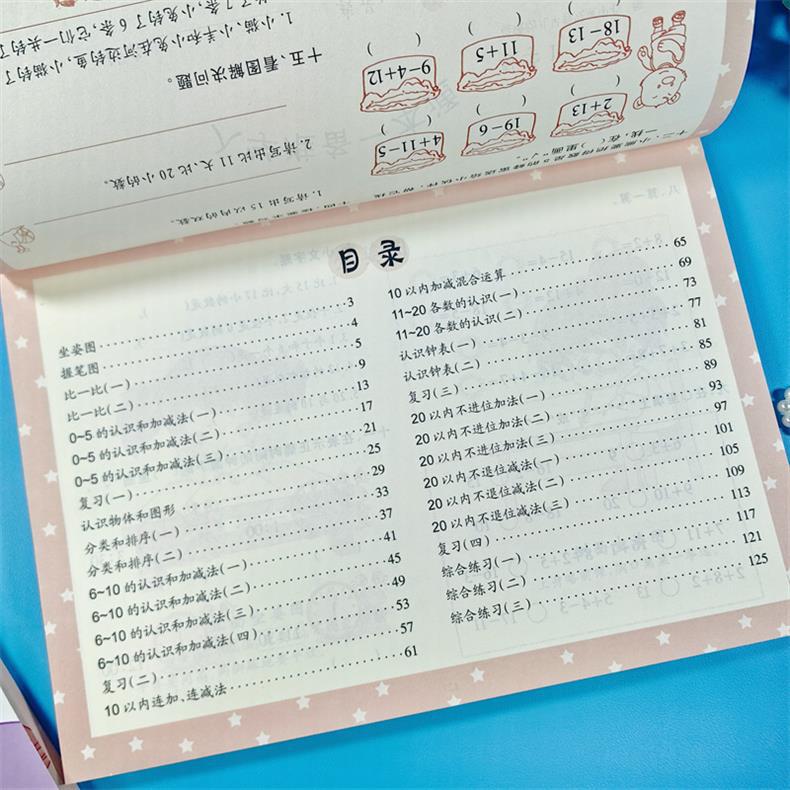 目录
坐姿图 3
握笔图 4
比一比(一) 5
比一比(二) 9
0~5 的认识和加减法(一) 13
0~5 的认识和加减法(二) 17
0~5 的认识和加减法(三) 21
复习(一) 25
认识物体和图形 29
分类和排序(一) 33
分类和排序(二) 37
6~10 的认识和加减法(一) 41
6~10 的认识和加减法(二) 45
6~10 的认识和加减法(三) 49
6~10 的认识和加减法(四) 53
复习(二) 57
10 以内连加、连减法 61
10 以内加减混合运算 65
11~20 各数的认识(一) 69
11~20 各数的认识(二) 73
认识钟表(一) 77
认识钟表(二) 81
复习(三) 85
20 以内不进位加法(一) 89
20 以内不进位加法(二) 93
20 以内不进位加法(三) 97
20 以内不退位减法(一) 101
20 以内不退位减法(二) 105
20 以内不退位减法(三) 109
复习(四) 113
综合练习(一) 117
综合练习(二) 121
综合练习(三) 125
4+11-5
19-6
2+13
9-4+12
11+5
18-13
1. 请写出 15 以内的双数。
2. 请写出比 11 大,比 20 小的数。
十五、看图解决问题。
1. 小猫、小羊和小兔在河边钓鱼,小猫钓了
7 条,小兔钓了 6 条,它们一共钓了